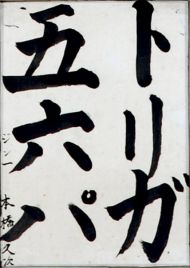 トリガ
五六パ
ジン一 本橋久次